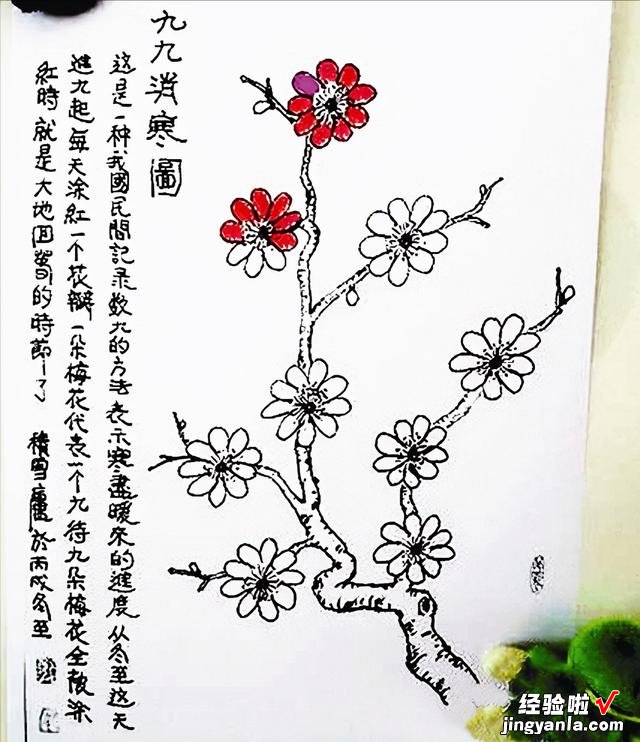 九九消寒圖
这是一种我國民間記录数九的方法表示寒盡暖來的進度从冬至这天
進九起每天涂红一个花瓣一朵梅花代表一个九待九朵梅花全被涂
紅時就是大地回春的時節了 積雪廬於丙戌冬至
经验啦√
jingyanla.com